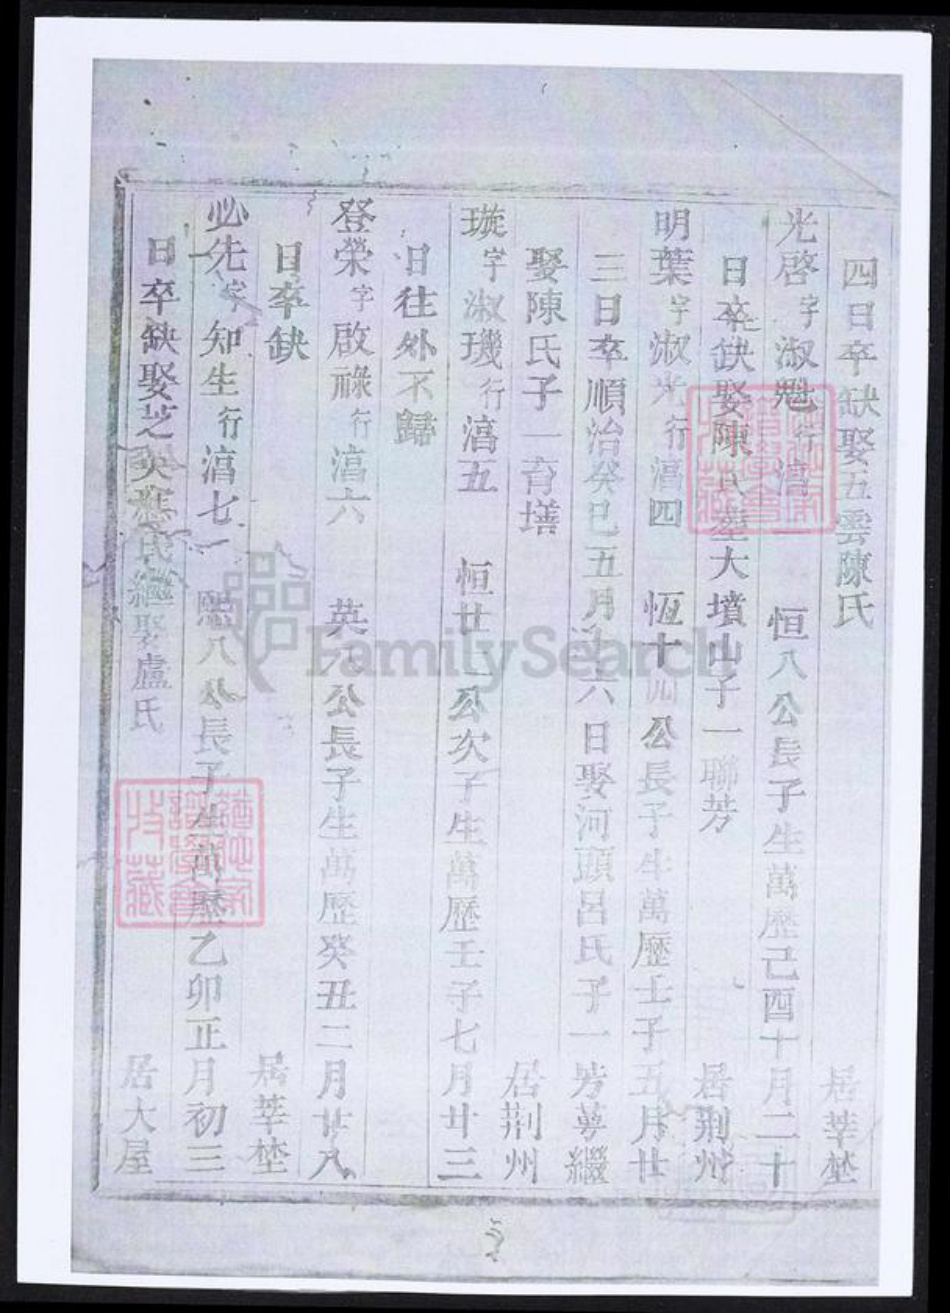 四日卒缺娶五雲陳氏 居莘塋
光啓字淑魁行濄一 恒八公長子生萬歷己酉十月二十
日卒缺娶陳氏塟大墳山子一聯芳 居荆州
明葉字淑光行濄四 恆十四公長子生萬歷壬子五月廿
三日卒順治癸巳五月十六日娶河頭呂氏子一芳蕚繼
娶陳氏子一育墡 居荆州
璇字淑璣行濄五 恒廿一公次子生萬歷壬子七月廿三
日往外不歸
登榮字啟祿行濄六 英八公長子生萬歷癸丑二月廿八
日卒缺 居莘塋
必先字知生行濄七 熙八公長子生萬歷乙卯正月初三
日卒缺娶芝英應氏繼娶盧氏 居大屋
FamilySearch